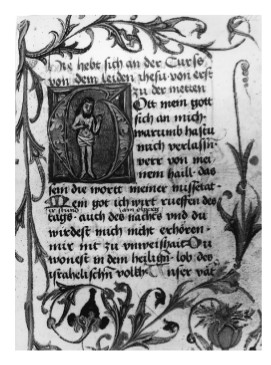 Hie hebt sich an der Curss
von dem leiden Jhesu von erst
zu der metten
Ott mein gott
sich an mich
warumb hastu
mich verlassn
verr von mei
nem haill. das
sein die wortt meiner missetat.
Mein got ich wirt rueffen des
tags. auch des nachtes vnd du
wirdest mich nicht erhoren.
mir nit zu vnweishait Du
wonest in dem heilign. lob des
ysrahelischn volkh. Unser vat